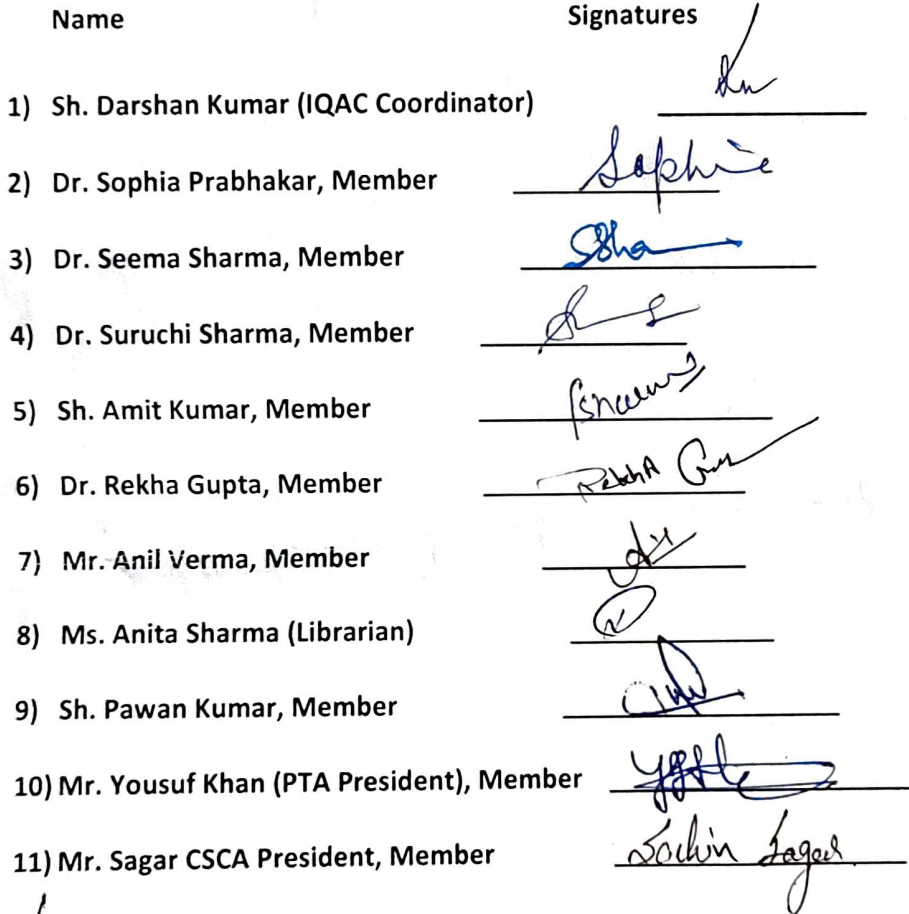 Name Signatures
1) Sh. Darshan Kumar (IQAC Coordinator)
2) Dr. Sophia Prabhakar, Member Sophie
3) Dr. Seema Sharma, Member
4) Dr. Suruchi Sharma, Member
5) Sh. Amit Kumar, Member
6) Dr. Rekha Gupta, Member RekhA
7) Mr. Anil Verma, Member
8) Ms. Anita Sharma (Librarian)
9) Sh. Pawan Kumar, Member
10) Mr. Yousuf Khan (PTA President), Member
11) Mr. Sagar CSCA President, Member Sachin Sagar